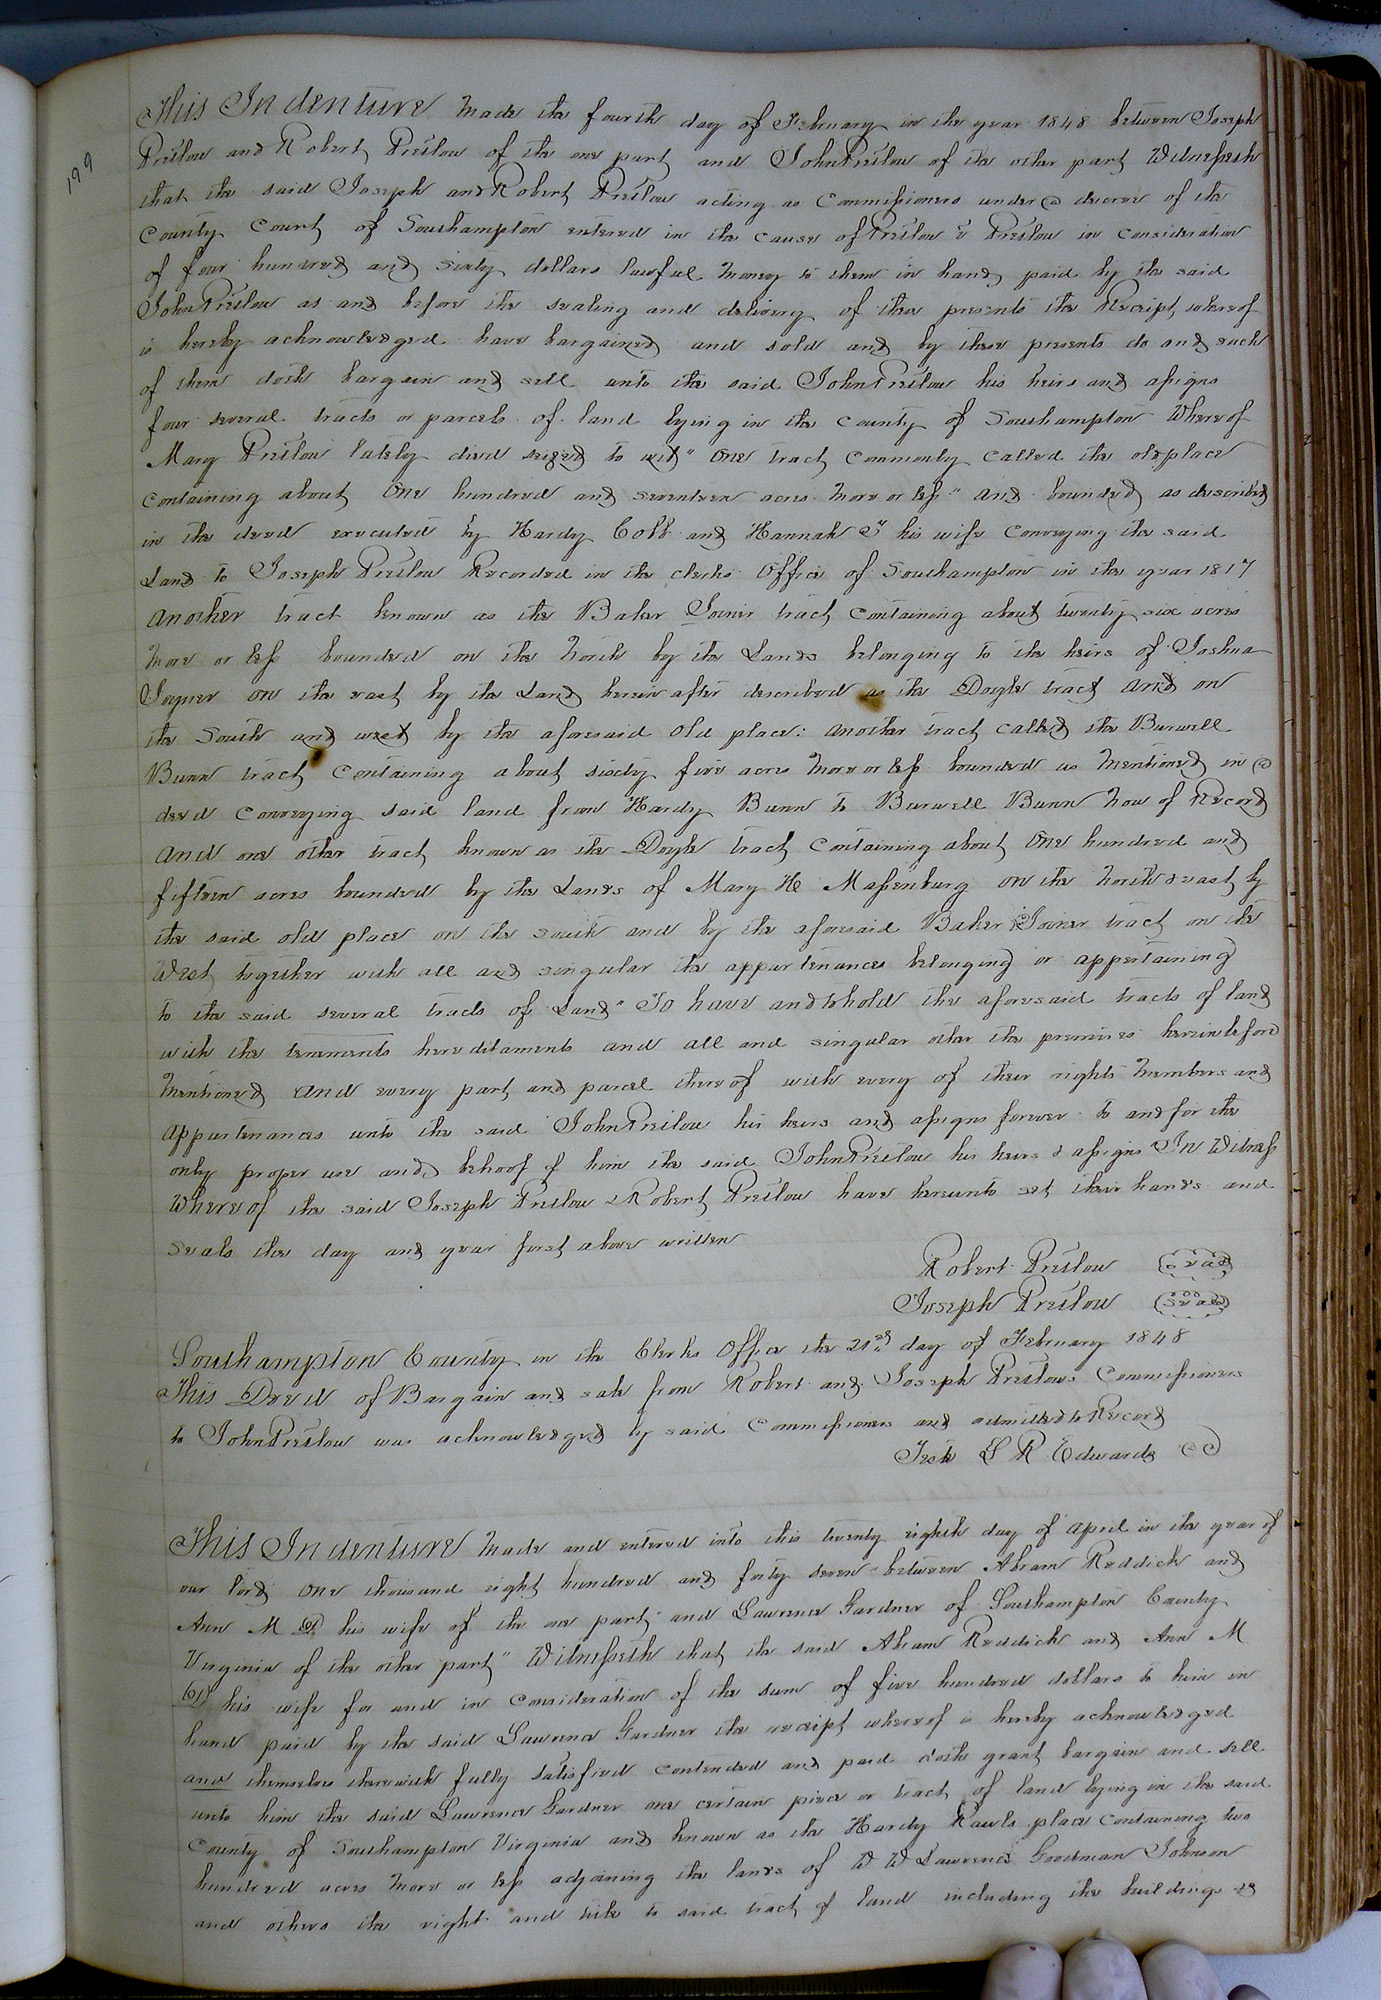 199
This Indenture Made the fourth day of February in the year 1848 between Joseph
Pretlow and Robert Pretlow of the one part and John Pretlow of the other part Witnesseth
that the said Joseph and Robert Pretlow acting as Commissioners under a decree of the
County Court of Southampton entered in the cause of Pretlow & Pretlow in consideration
of four hundred and sixty dollars lawful money to them in hand paid by the said
John Pretlow at and before the sealing and delivery of these presents the Receipt whereof
is hereby acknowledged have bargained and sold and by these presents do and each
of them doth bargain and sell unto the said John Pretlow his heirs and assigns
four several tracts or parcels of land lying in the County of Southampton Whereof
Mary Pretlow lately died seized to wit" One tract Commonly Called the old place
Containing about One hundred and seventeen acres More or less" and bounded as described
in the deed executed by Hardy Cobb and Hannah his wife Conveying the said
Land to Joseph Pretlow Recorded in the clerks Office of Southampton in the year 1817
Another tract known as the Baker Joiner tract Containing about twenty six acres
More or less bounded on the North by the Lands belonging to the heirs of Joshua
Joyner on the east by the Land herein after described as the Doyle tract and on
the South and west by the aforesaid Old place: another tract called the Burwell
Bunn tract Containing about sixty five acres More or less bounded as Mentioned in a
deed Conveying said land from Hardy Bunn to Burwell Bunn Now of Record
and one other tract known as the Doyle tract Containing about One hundred and
fifteen acres bounded by the Lands of Mary H Massenburg on the North & east by
the said old place on the south and by the aforesaid Baker Joiner tract on the
West together with all and singular the appurtenances belonging or appertaining
to the said several tracts of Land" To have and to hold the aforesaid tracts of land
with the tenaments hereditaments and all and singular other the premises hereinbefore
Mentioned and every part and parcel thereof with every of their rights Members and
appurtenances unto the said John Pretlow his heirs and assigns forever to and for the
only proper use and behoof of him the said John Pretlow his heirs & assigns In Witness
Whereof the said Joseph Pretlow & Robert Pretlow have hereunto set their hands and
seals the day and year first above written
Robert Pretlow seal
Joseph Pretlow seal
Southampton County in the Clerks Office the 21st day of February 1848
This Deed of Bargain and sale from Robert and Joseph Pretlow Commissioners
to John Pretlow was acknowledged by said Commissioners and admitted to Record
Teste L R Edwards CC
This Indenture Made and entered into this twenty eighth day of April in the year of
our lord One thousand eight hundred and forty seven between Abram Reddick and
Ann M his wife of the one part and Lawrence Gardner of Southampton County
Virginia of the other part" Witnesseth that the said Abram Reddick and Ann M
his wife for and in consideration of the sum of five hundred dollars to him in
hand paid by the said Lawrence Gardner the receipt whereof is hereby acknowledged
and themselves therewith fully satisfied contended and paid doth grant bargain and sell
unto him the said Lawrence Gardner one certain piece or tract of land lying in the said
County of Southampton Virginia and known as the Hardy Rawls place Containing two
hundred acres More or less adjoining the lands of W W Lawrence Goodman Johnson
and others the right and title to said tract of land including the buildings &